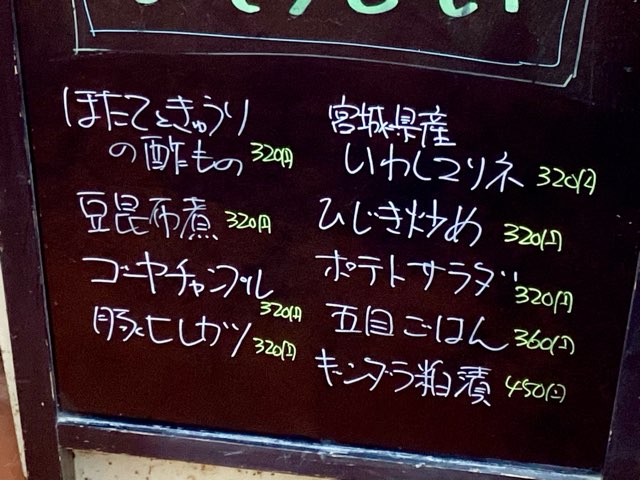 ほたてときゅうり
の酢もの 320円
豆昆布煮 320円
ゴーヤチャンプル
320円
豚ヒレカツ 320円
宮城県産
いわしマリネ 320円
ひじき炒め 320円
ポテトサラダ
320円
五目ごはん 360円
ギンダラ粕漬 450円